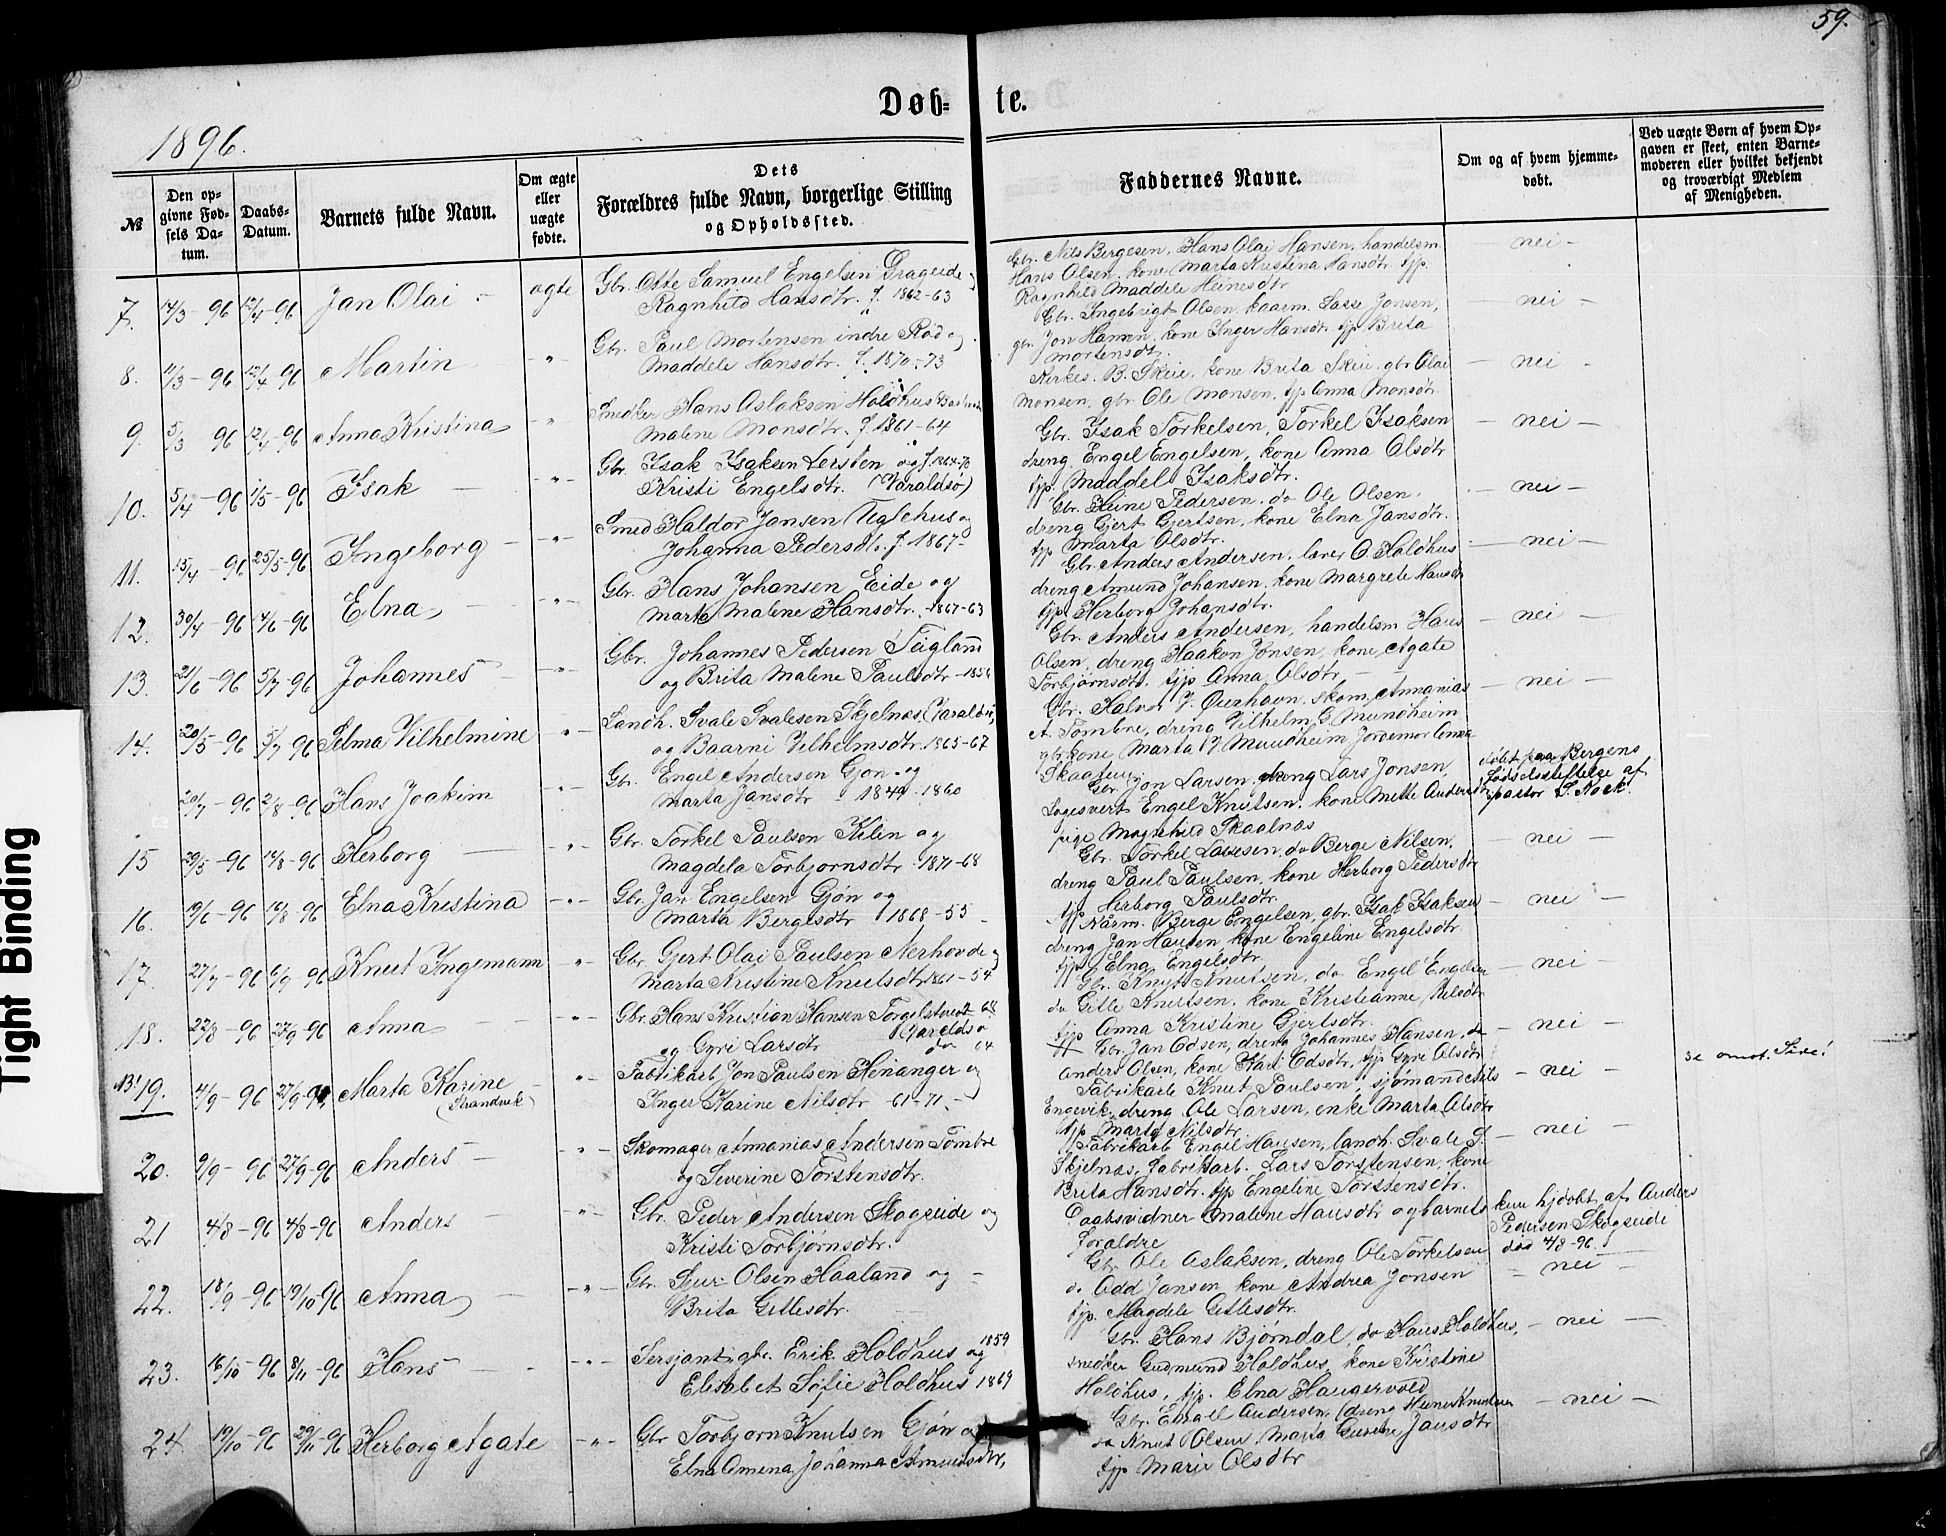 59.
Døb-
te.
1896.
№
Den op-
givne Fød-
sels Da-
tum.
Daabs-
Datum.
Barnets fulde Navn.
Om ægte
eller
uægte
fødte.
Dets
Forældres fulde Navn, borgerlige Stilling
og Opholdssted.
Faddernes Navne.
Om og af hvem hjemme-
døbt.
Ved uægte Børn af hvem Op-
gaven er skeet, enten Barne-
moderen eller hvilket bekjendt
og troværdigt Medlem
af Menigheden.
7. 14/3 - 96 12/4 - 96 Jan Olai - ægte
Gbr. Otte Samuel Engelsen Drageide
Ragnhild Hansdtr. f. 1862-63
Gbr. Nils Bergesen, Hans Olai Hansen, handelsm
Hans Olsen, kone Marta Kristina Hansdtr. tjp.
Ragnhild Maddele Heinesdtr
- nei -
8. 11/3 - 96 12/4 96 Martin -"-
Gbr. Paul Mortensen indre Rød og
Maddele Hansdtr. f. 1870-73
Gbr. Ingebrigt Olsen, kaarm. Lasse Jonsen,
gbr. Jon Hansen, kone Inger Hansdtr. tjp Brita
Mortensdtr.
- nei -
9. 5/3 96 12/4 - 96 Anna Kristina -"-
Snedker Hans Aslaksen Holdhus
Malene Monsdtr. f. 1861-64
Kirkes. B. Skeie, kone Brita Skeie, gbr Olai
Monsen, gbr. Ole Monsen, tjp Anna Monsdtr.
- nei -
10. 5/4 - 96 1/5 - 96 Isak -"-
Gbr. Isak Isaksen Lersten og f. 1864-70
Kristi Engelsdtr. (Varaldsø)
Gbr. Isak Torkelsen, Torkel Isaksen
dreng Engel Engelsen, kone Anna Olsdtr
tjp. Maddele Isaksdtr.
- nei -
11. 15/4 - 96 25/5 - 96 Ingeborg -"-
Smed Haldor Jansen Teglehus og
Johanna Pedersdtr. f. 1867-
Gbr. Heine Pedersen, do Ole Olsen,
dreng Gjert Gjertsen, kone Elna Jansdtr.
tjp Marta Olsdtr.
- nei -
12. 30/4 - 96 14/6 - 96 Elna, -"-
Gbr. Hans Johansen Eide og
Marta Malene Hansdtr. - 1867-63
Gbr. Anders Andersen, lærer O. Holdhus
dreng Amund Johansen, kone Margrete Hansdtr
tjp. Herborg Johansdtr.
- nei -
13. 21/6 - 96 5/7 - 96 Johannes -"-
Gbr. Johannes Pedersen Tægland
og Brita Malene Paulsdtr - 185
Gbr. Anders Andersen, handelsm Hans
Olsen, dreng Haakon Jonsen, kone Agate
Torbjørnsdtr. tjp Anna Olsdtr -
- nei -
14. 20/5 - 96 5/7 - 96 Selma Vilhelmine "-
Landh. Svale Svalesen Skjelnæs, (Varaldsø)
og Baarni Vilhelmsdtr. 1865-67
Gbr. Halvor J. Øierhavn, skom. Annanias
A. Tombre, dreng Vilhelm G. Mundheim
gbrkone Marta J. Mundheim, Jordemor Anna
Skaatun
- nei -
20/7 - 96 2/8 - 96 Hans Joakim -"-
Gbr. Engel Andersen Gjøn - og
Marta Jansdtr - 1844 - 1860
Gbr Jon Larsen, dreng Lars Jonsen,
Logsvert Engel Knutsen, kone Mette Andersdtr,
pige Magnhild Skaalnæs
døbt paa Bergens
Fødselsstiftelse af
pastor S. Nock.
15 29/5 - 96 16/8 - 96 Herborg -"-
Gbr. Torkel Paulsen Kilen og
Magdela Torbjornsdtr. 1871-68
Gbr. Torkel Larsen, do Berge Nilsen,
dreng Paul Paulsen, kone Herborg Pedersdtr
tjp Herborg Paulsdtr.
- nei -
16. 19/6 - 96 16/8 - 96 Elna Kristina -"-
Gbr. Jan Engelsen Gjøn og
Marta Bergesdtr 1868-55 -
Nårm. Berge Engelsen, gbr. Isak Isaksen
dreng Jan Hansen, kone Engeline Engelsdtr
tjp Elna Engelsdtr.
- nei -
17. 27/7 - 96 6/9 96 Knut Ingemann "
Gbr Gjert Olai Paulsen Nerhovde og
Marta Kristine Knutsdtr 1861-54
Gbr. Knut Knutsen, do Engel Engelsen
do Gitle Knutsen, kone Kristianne Nilsdtr
tjp Anna Kristine Gjertsdtr.
- nei -
18. 22/8 - 96 27/9 - 96 Anna -"-
Gbr Hans Kristian Hansen Torgelstveit 68
og Gyri Larsdtr Varaldsø
do 64
Gbr Jan Odsen, dreng Johannes Hansen, do
Anders Olsen, kone Kari Odsdtr, tjp Gyri Olsdtr
- nei -
13! 19. 4/9 - 96 27/9 - 96 Marta Karine - "-
(Strandvik)
Fabrikarb Jon Paulsen Henanger og
Inger Karine Nilsdtr - 61-71. -
Fabrikarb Knut Paulsen, sjømand Nils
Engevik, dreng Ole Larsen, enke Marta Olsdtr
tjp Marta Nilsdtr.
- nei -
se omst. Side!
20. 9/9 - 96 27/9 - 96 Anders - "-
Skomager Annanias Andersen Tombre
og Severine Torstensdtr.
Fabrikarb Engel Hansen, landh. Svale S.
Skjelnæs, fabrikarb. Lars Torstensen, kone
Brita Hansdtr. tjp Engeline Torstensdtr.
- nei -
21 4/8 - 96 4/8 - 96 Anders - "-
Gbr. Peder Andersen Skogseide og
Kristi Torbjørnsdtr.
Daabsvidner Malene Hansdtr og barnets
foræeldre
kun hjdøbt af Anders
Pedersen Skogseide
død 4/8 - 96.
22. 18/9 - 96 19/10 - 96 Anna -"-
Gbr. Sjur Olsen Haaland og -
Brita Gitlesdtr.
Gbr Ole Aslaksen, dreng Ole Torkelsen
do Odd Jansen kone Andrea Jonsen
tjp. Magdele Gitlesdtr.
- nei -
23. 16/10 - 96 8/11 - 96 Hans - -"-
Sersjant, gbr. Erik Holdhus og 1859
Elisabet Sofie Holdhus 1869
Gbr. Hans Bjørndal, do Hans Holdhus,
snedker Gudmund Holdhus, kone Kristine
Holdhus, tjp. Elna Haugervold
- nei -
24. 19/10 - 96 29/11 - 96 Herborg Agate -"-
Gbr Torbjorn Knutsen Gjøn og
Elna Amena Johanna Amundsdtr,
Gbr. Andersen, (dreng Heine Knutsen
do Knut Olsen, Marta Jansdtr
tjp Marie Olsdtr
- nei -
Tight Binding